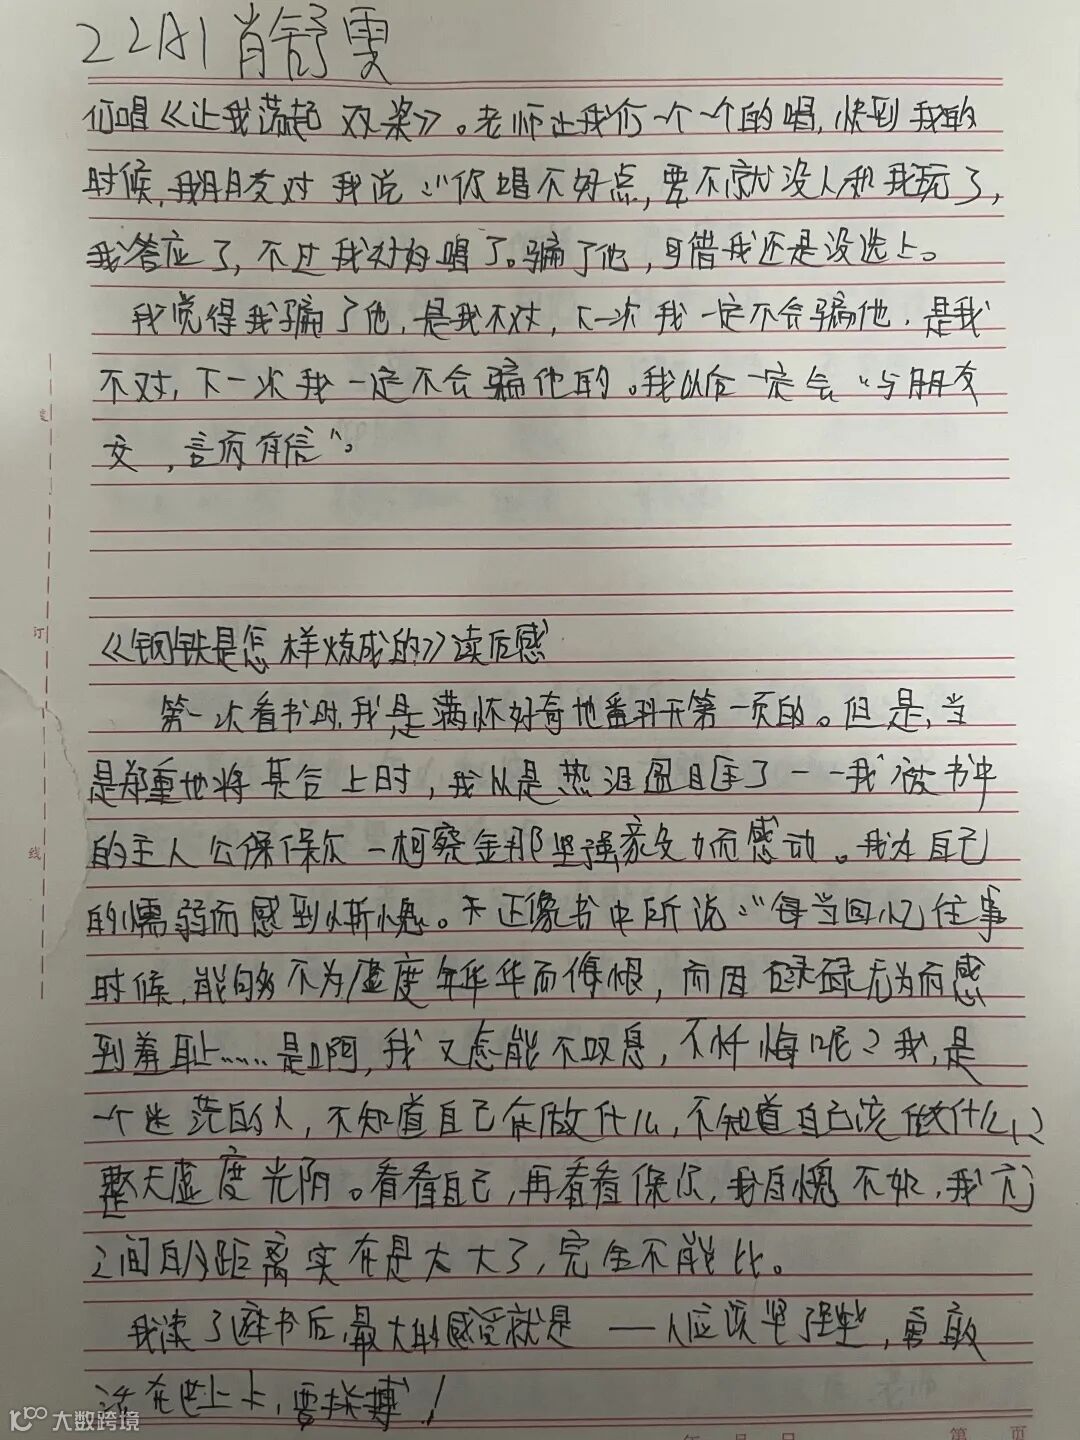 22A1 肖舒雯
们唱《让我荡起双桨》。老师让我们一个一个的唱,快到我的
时候,我朋友对我说:“你唱不好点,要不就没人和我玩了,
我答应了,不过我好好唱了。骗了他,可惜我还是没选上。
我觉得我骗了他,是我不对,下一次我一定不会骗他,是我
不对,下一次我一定不会骗他的。我以后一定会“与朋友
交,言而有信”。
《钢铁是怎样炼成的》读后感
第一次看书时,我是满怀好奇地翻开第一页的。但是,当
是郑重地将其合上时,我从是热泪盈眶了——我被书中
的主人公保保尔—柯察金那坚强毅力而感动。我为自己
的懦弱而感到惭愧。正像书中所说:“每当回忆往事
时候,能够不为虚度年华华而悔恨,而因碌碌无为而感
到羞耻……是啊,我又怎能不叹息,不忏悔呢?我,是
一个迷茫的人,不知道自己在做什么,不知道自己该做什么,
整天虚度光阴。看看自己,再看看保尔,我自愧不如,我们
之间的距离实在是太大了,完全不能比。
我读了这本书后,最大的感受就是——人应该坚强些,勇敢
活在世上,要拼搏!
装
订
线
第 页
年 月 日
大数跨境